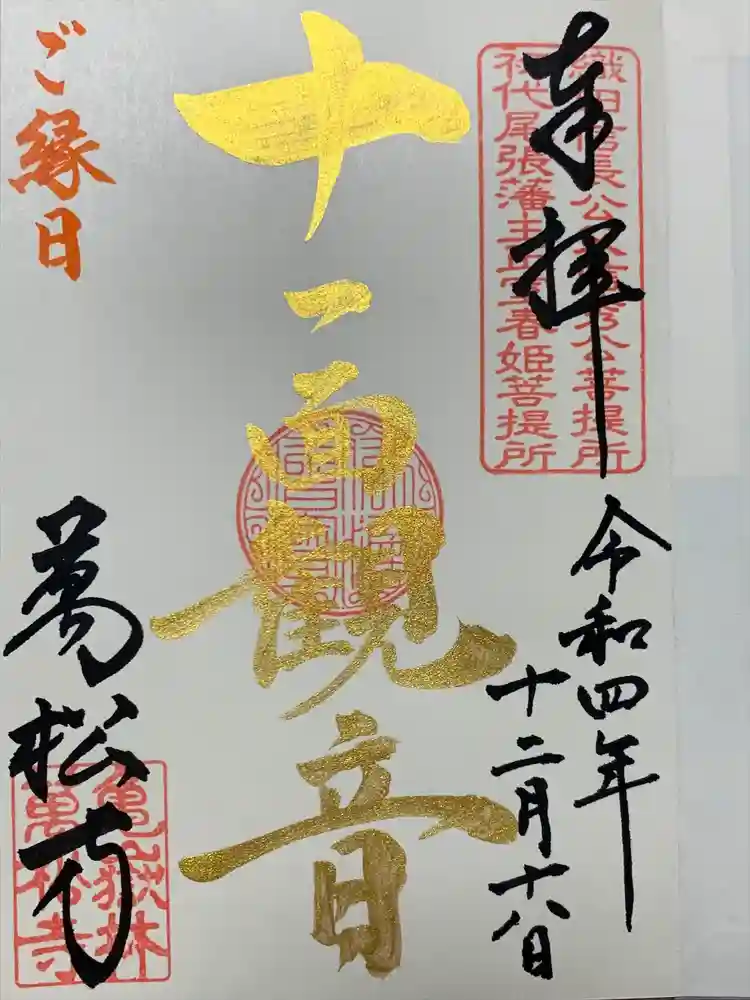 奉拝
織田信長公
公菩提所
初代尾張藩主正室春姫菩提所
令和四年
十二月十八日
十一面観音
ご縁日
萬松寺
亀嶽林
萬松寺